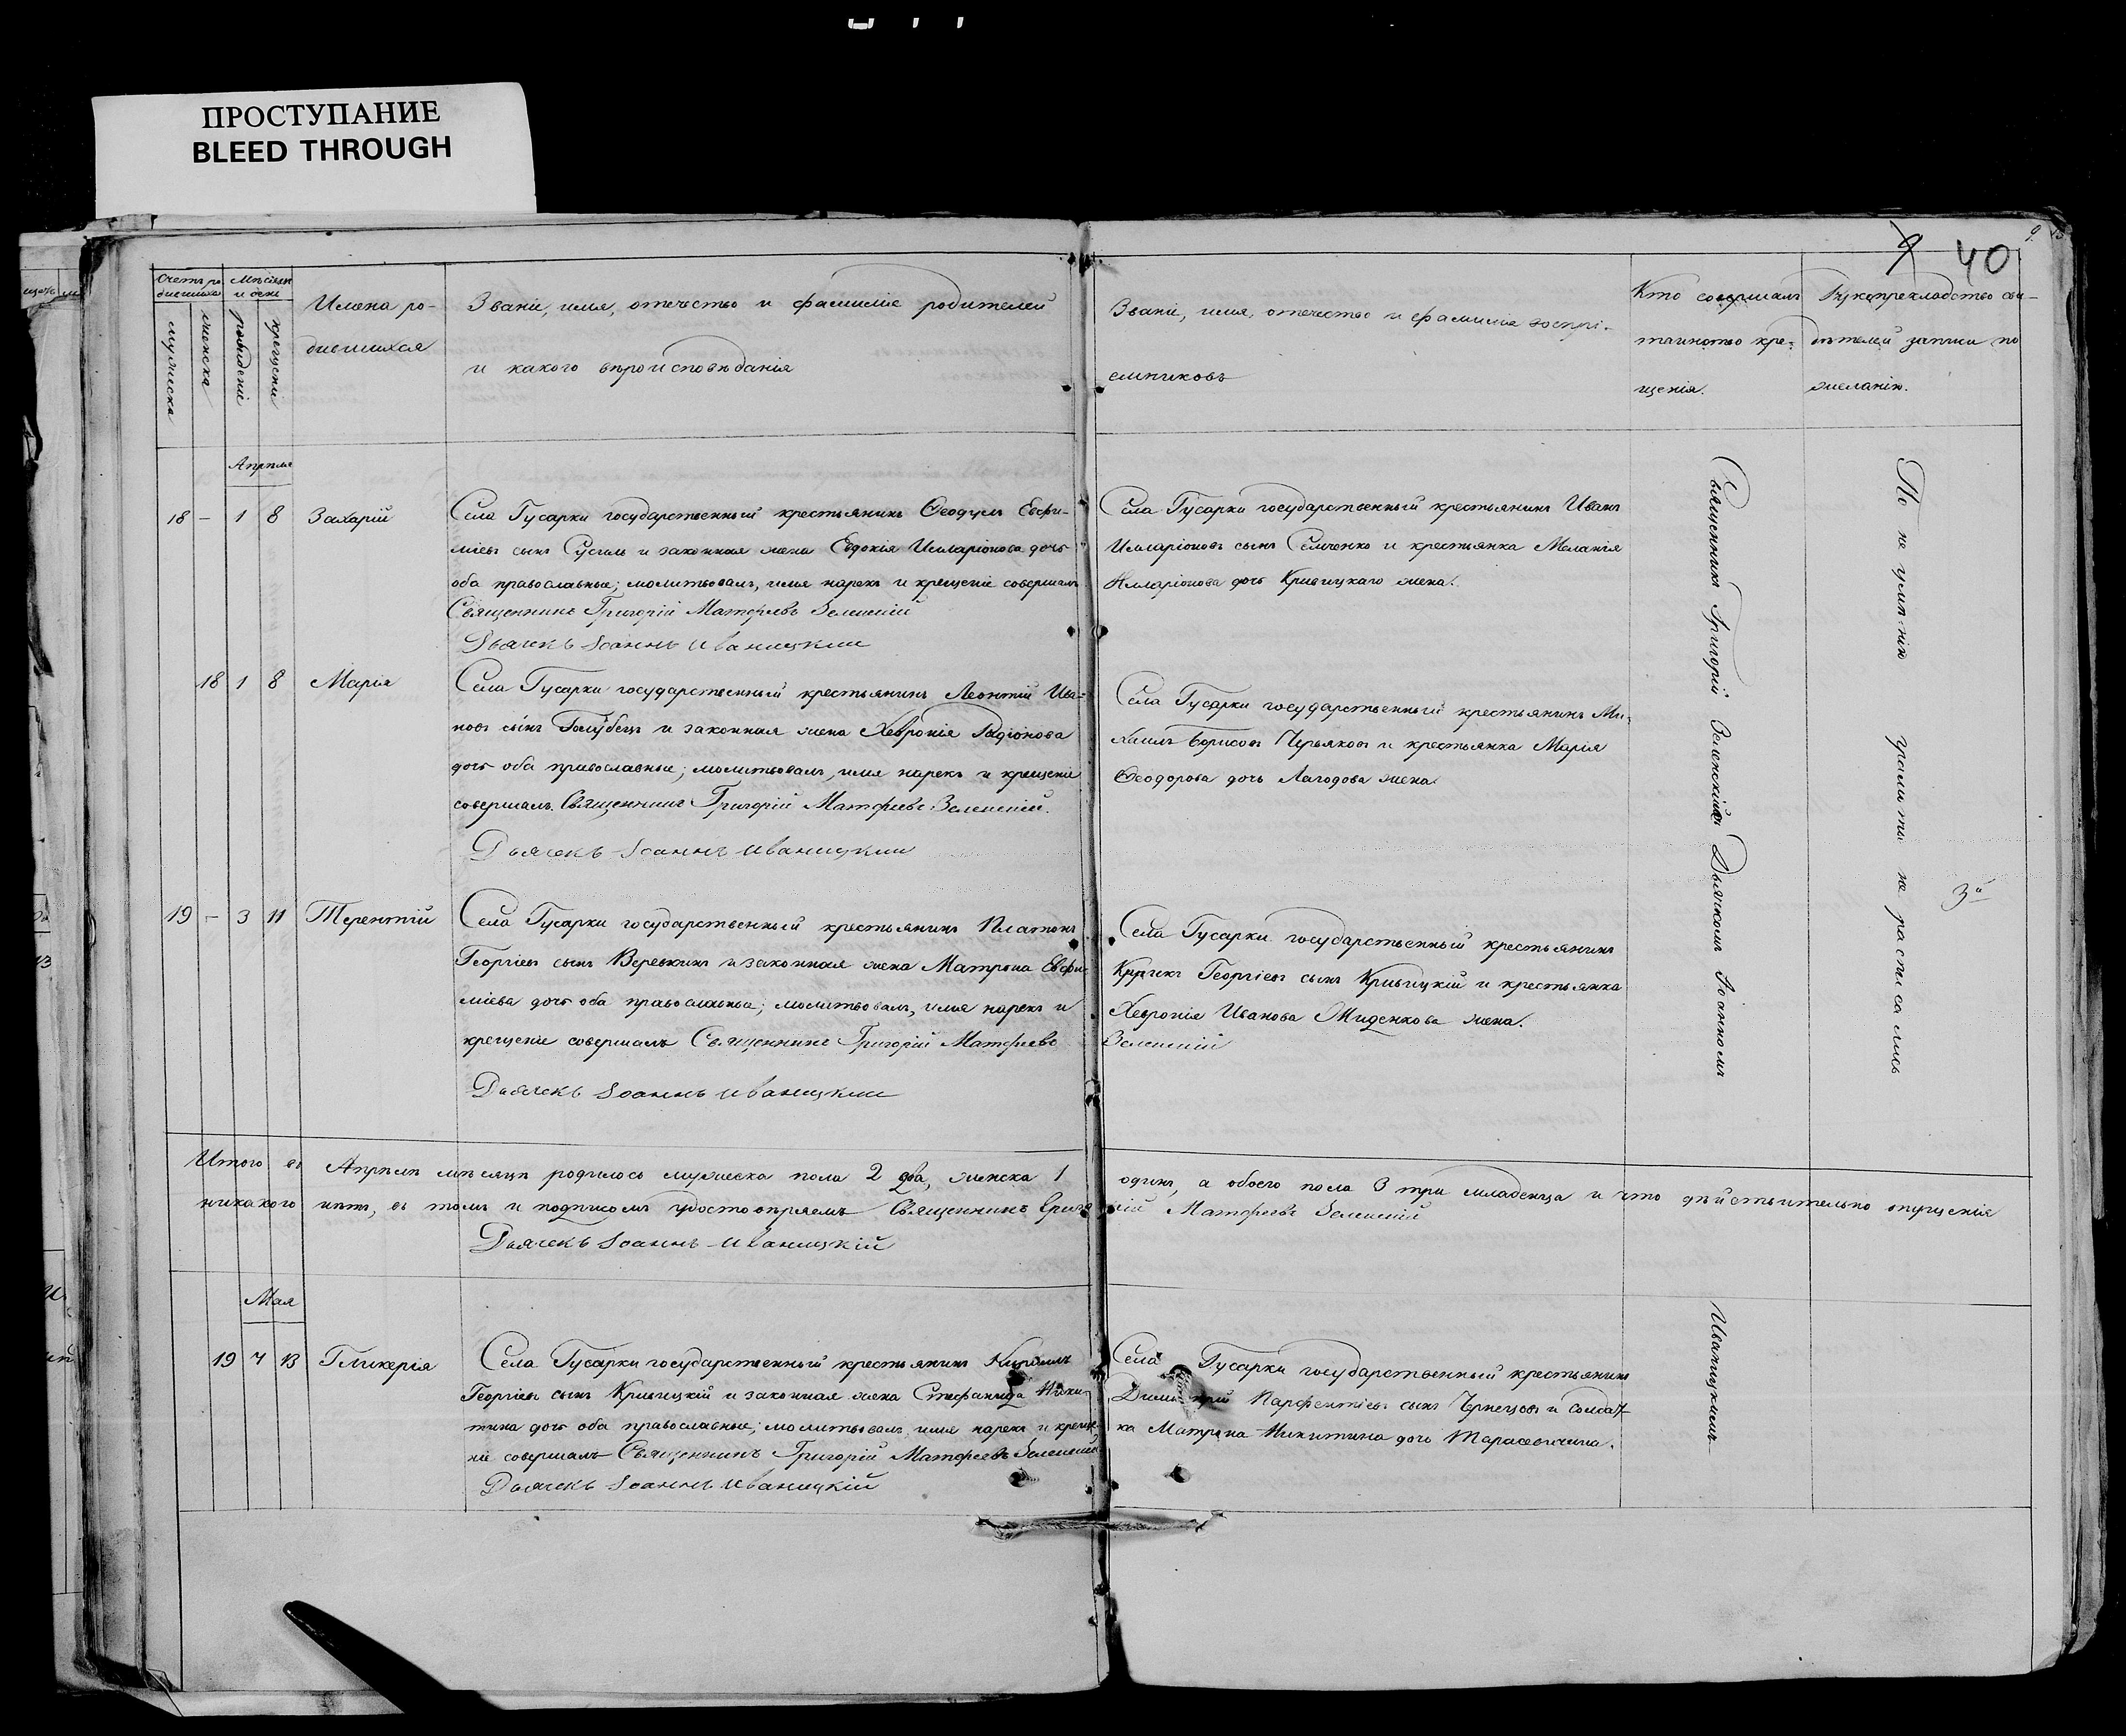 ПРОСТУПАНИЕ
BLEED THROUGH
9 40
Счетъ ро-
дившихся
мужеска
женска
Мѣсяцъ
и день
рожденія
крещенія
Имена ро-
дившихся
Званіе, имя, отечество и фамилія родителей
и какого вѣроисповѣданія
Званіе, имя, отечество и фамилія воспрі-
емниковъ
Кто совершалъ
таинство кре-
щенія.
Рукоприкладство сви-
дѣтелей записи по
желанію.
Апрѣля
18 - 1 8 Захарій
Села Гусарки государственный крестьянинъ Ѳеодулъ Евфи-
міевъ сынъ и законная жена Евдокія Илларіонова дочь
оба православные; молитвовалъ, имя нарекъ и крещеніе совершалъ
Священникъ Григорій Матфеевъ Зеленскій
Дьячекъ Іоаннъ Иваницкій
Села Гусарки государственный крестьянинъ Иванъ
Илларіоновъ сынъ Семченко и крестьянка Меланія
Илларіонова дочь Кривицкаго жена.
18 1 8 Марія
Села Гусарки государственный крестьянинъ Леонтій Ива-
новъ сынъ Голубецъ и законная жена Хевронія Радіонова
дочь оба православные; молитвовалъ, имя нарекъ и крещеніе
совершалъ. Священникъ Григорій Матфеевъ Зеленскій.
Дьячекъ Іоаннъ Иваницкій
Села Гусарки государственный крестьянинъ Ми-
хаилъ Борисовъ Червяковъ и крестьянка Марія
Ѳеодорова дочь Лагодова жена.
19 - 3 11 Терентій
Села Гусарки государственный крестьянинъ Платонъ
Георгіевъ сынъ Веревкинъ и законная жена Матрона Евфи-
міева дочь оба православные; молитвовалъ, имя нарекъ и
крещеніе совершалъ Священникъ Григорій Матфеевъ
Зеленскій
Дьячекъ Іоаннъ Иваницкій
Села Гусарки государственный крестьянинъ
Георгіевъ сынъ Кривицкій и крестьянка
Хевронія Иванова жена.
Священникъ Григорій Зеленскій съ Дьячкомъ Іоанномъ
Иваницкимъ.
По не умѣнію грамоты не расписались
Итого въ Апрѣлѣ мѣсяцѣ родилось мужеска пола 2 два, женска 1 одинъ, а обоего пола 3 три младенца и что дѣйствительно опущенія
никакого нѣтъ, въ томъ и подписомъ удостовѣряемъ Священникъ Григорій Матфеевъ Зеленскій
Дьячекъ Іоаннъ Иваницкій
Мая
19 7 13 Гликерія
Села Гусарки государственный крестьянинъ Кириллъ
Георгіевъ сынъ Кривицкій и законная жена Стефанида Ники-
тина дочь оба православные; молитвовалъ, имя нарекъ и креще-
ніе совершалъ Священникъ Григорій Матфеевъ Зеленскій
Дьячекъ Іоаннъ Иваницкій
Села Гусарки государственный крестьянинъ
Димитрій Парфентіевъ сынъ Чернецовъ и солдат-
ка Матрона Никитина дочь